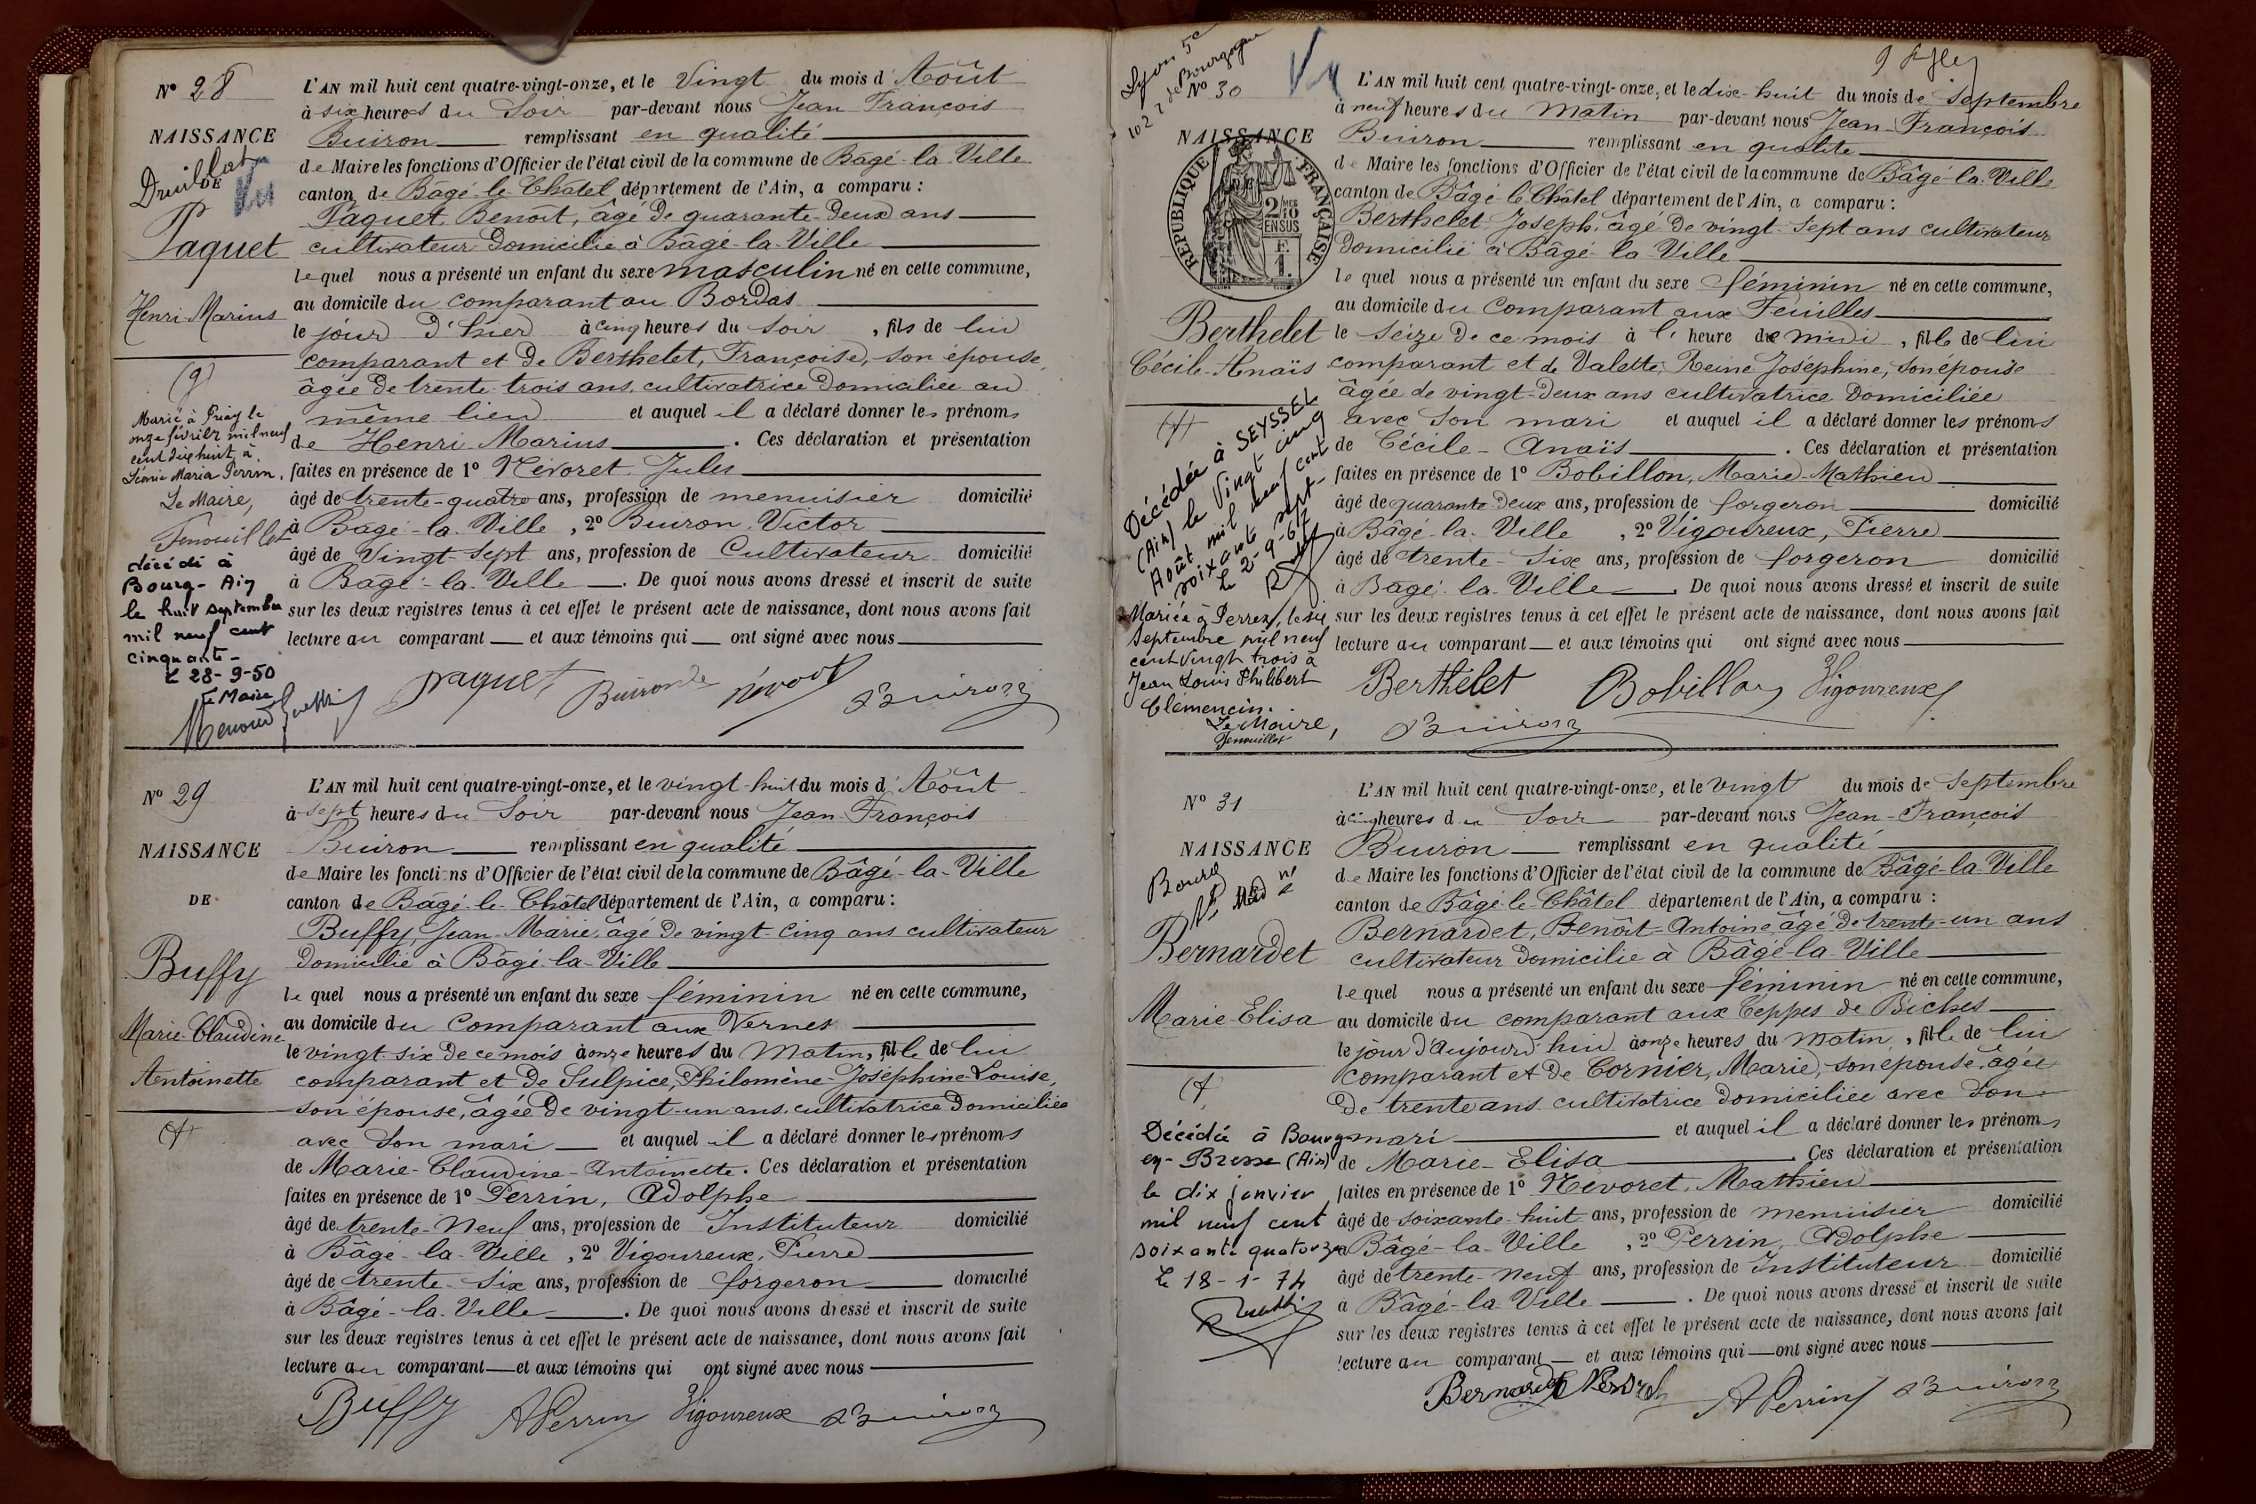 N° 28
NAISSANCE
DE
Paquet
Henri-Marius
Marié à
onze février mil neuf
cent dix huit, à
Léonie Maria Perrin.
Le Maire,
Fenouillet
décédé à
Bourg-Ain
le huit septembre
mil neuf cent
cinquante-
Le 28-9-50
Le Maire
L'AN mil huit cent quatre-vingt-onze, et le Vingt du mois d'Août
à six heures du Soir par-devant nous Jean François
Buiron remplissant en qualité
de Maire les fonctions d'Officier de l'état civil de la commune de Bâgé-la-Ville
canton de Bâgé-le-Châtel département de l'Ain, a comparu :
Paquet, Benoît, âgé de quarante-deux ans
cultivateur domicilié à Bâgé-la-Ville
lequel nous a présenté un enfant du sexe masculin né en cette commune,
au domicile du comparant au Bordas
le jour d'hier à cinq heures du soir, fils de lui
comparant et de Berthelet, Françoise, son épouse,
âgée de trente-trois ans, cultivatrice domiciliée au
même lieu et auquel il a déclaré donner les prénoms
de Henri-Marius. Ces déclaration et présentation
faites en présence de 1° Névoret, Jules
âgé de trente-quatre ans, profession de menuisier domicilié
à Bâgé-la-Ville, 2° Buiron, Victor
âgé de Vingt-sept ans, profession de Cultivateur domicilié
à Bâgé-la-Ville. De quoi nous avons dressé et inscrit de suite
sur les deux registres tenus à cet effet le présent acte de naissance, dont nous avons fait
lecture au comparant et aux témoins qui ont signé avec nous
Paquet Buiron Névoret Buiron
N° 29
NAISSANCE
DE
Buffy
Marie-Claudine
Antoinette
L'AN mil huit cent quatre-vingt-onze, et le vingt-huit du mois d'Août
à sept heures du Soir par-devant nous Jean-François
Buiron remplissant en qualité
de Maire les fonctions d'Officier de l'état civil de la commune de Bâgé-la-Ville
canton de Bâgé-le-Châtel département de l'Ain, a comparu :
Buffy, Jean-Marie, âgé de vingt-cinq ans cultivateur
domicilié à Bâgé-la-Ville
lequel nous a présenté un enfant du sexe féminin né en cette commune,
au domicile du comparant aux Vernes
le vingt-six de ce mois à onze heures du Matin, fille de lui
comparant et de Sulpice, Philomène-Joséphine-Louise,
son épouse, âgée de vingt-un ans, cultivatrice domiciliée
avec son mari et auquel il a déclaré donner les prénoms
de Marie-Claudine-Antoinette. Ces déclaration et présentation
faites en présence de 1° Perrin, Adolphe
âgé de trente-neuf ans, profession de Instituteur domicilié
à Bâgé-la-Ville, 2° Vigoureux, Pierre
âgé de trente-six ans, profession de forgeron domicilié
à Bâgé-la-Ville. De quoi nous avons dressé et inscrit de suite
sur les deux registres tenus à cet effet le présent acte de naissance, dont nous avons fait
lecture au comparant et aux témoins qui ont signé avec nous
Buffy APerrin Vigoureux Buiron
Lyon 5e
N° 30
NAISSANCE
RÉPUBLIQUE FRANÇAISE
2/10 EN SUS
Berthelet
Cécile-Anaïs
Décédée à SEYSSEL
(Ain) le Vingt cinq
Août mil neuf cent
soixante sept-
Le 2-9-67
Mariée à Perrex, le six
septembre mil neuf
cent vingt trois à
Jean Louis Philibert
Clémencin.
Le Maire,
Fenouillet
L'AN mil huit cent quatre-vingt-onze, et le dix-huit du mois de Septembre
à neuf heures du Matin par-devant nous Jean-François
Buiron remplissant en qualité
de Maire les fonctions d'Officier de l'état civil de la commune de Bâgé-la-Ville
canton de Bâgé-le-Châtel département de l'Ain, a comparu :
Berthelet Joseph, âgé de vingt-sept ans cultivateur
domicilié à Bâgé-la-Ville
lequel nous a présenté un enfant du sexe féminin né en cette commune,
au domicile du comparant aux Feuilles
le seize de ce mois à l' heure de midi, fille de lui
comparant et de Valette, Reine Joséphine, son épouse
âgée de vingt-deux ans cultivatrice domiciliée
avec son mari et auquel il a déclaré donner les prénoms
de Cécile-Anaïs. Ces déclaration et présentation
faites en présence de 1° Bobillon, Marie-Mathieu
âgé de quarante deux ans, profession de forgeron domicilié
à Bâgé-la-Ville, 2° Vigoureux, Pierre
âgé de trente-six ans, profession de forgeron domicilié
à Bâgé-la-Ville. De quoi nous avons dressé et inscrit de suite
sur les deux registres tenus à cet effet le présent acte de naissance, dont nous avons fait
lecture au comparant et aux témoins qui ont signé avec nous
Berthelet Bobillon Vigoureux
Buiron
N° 31
NAISSANCE
Bourg
Bernardet
Marie-Elisa
Décédée à Bourg-
en-Bresse (Ain)
le dix janvier
mil neuf cent
soixante quatorze
Le 18-1-74
L'AN mil huit cent quatre-vingt-onze, et le vingt du mois de Septembre
à cinq heures du Soir par-devant nous Jean-François
Buiron remplissant en qualité
de Maire les fonctions d'Officier de l'état civil de la commune de Bâgé-la-Ville
canton de Bâgé-le-Châtel département de l'Ain, a comparu :
Bernardet, Benoît-Antoine âgé de trente-un ans
cultivateur domicilié à Bâgé-la-Ville
lequel nous a présenté un enfant du sexe féminin né en cette commune,
au domicile du comparant aux Ceppes de Biches
le jour d'aujourd'hui à onze heures du matin, fille de lui
comparant et de Cornier, Marie, son épouse, âgée
de trente ans cultivatrice domiciliée avec son
mari et auquel il a déclaré donner les prénoms
de Marie-Elisa. Ces déclaration et présentation
faites en présence de 1° Névoret, Mathieu
âgé de soixante-huit ans, profession de menuisier domicilié
à Bâgé-la-Ville, 2° Perrin, Adolphe
âgé de trente-neuf ans, profession de Instituteur domicilié
à Bâgé-la-Ville. De quoi nous avons dressé et inscrit de suite
sur les deux registres tenus à cet effet le présent acte de naissance, dont nous avons fait
lecture au comparant et aux témoins qui ont signé avec nous
Bernardet APerrin Buiron